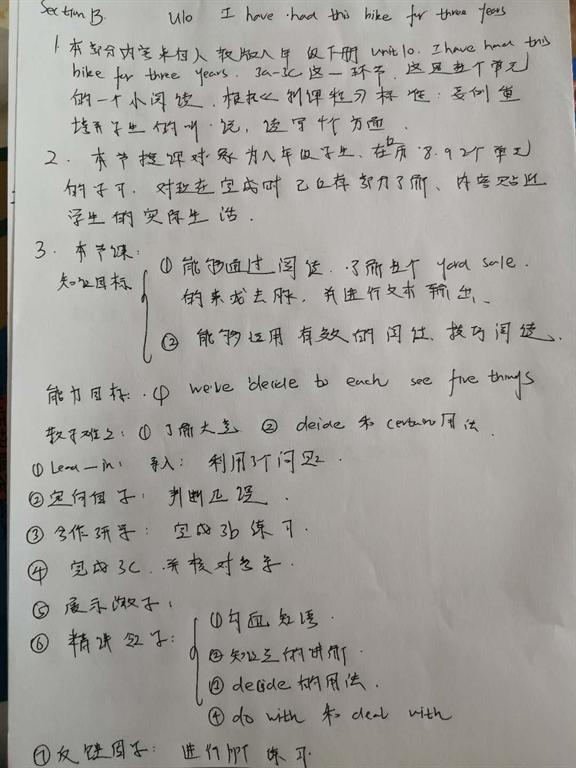 Section B. U10 I have had this bike for three years
1 本部分内容来自人教版八年级下册 Unit 10. I have had this
bike for three years. 3a-3c 这一环节. 这是整个单元
的一个小阅读. 根据《新课程标准: 要侧重
培养学生的听、说、读、写4个方面.
2. 本节授课对象为八年级学生. 在 8.9 2个单元
的学习. 对现在完成时已经有部分了解、内容贴近
学生的实际生活.
3. 本节课:
知识目标
① 能够通过阅读. 了解整个 yard sale.
的来龙去脉, 并进行文本输出、
② 能够运用有效的阅读、技巧阅读、
能力目标: ① we've decide to each see five things
教学难点: ① 了解大意 ② deide 和 certain 用法
① Lead-in: 导入: 利用3个问题.
②定向自学: 判断正误.
③ 合作研学: 完成3b练习.
④ 完成3C. 并核对答案.
⑤ 展示激学:
⑥ 精讲 学:
①勾画短语.
②知识点的讲解
③ decide 的用法.
④ do with 和 deal with
⑦ 反馈固学: 进行PPT练习.